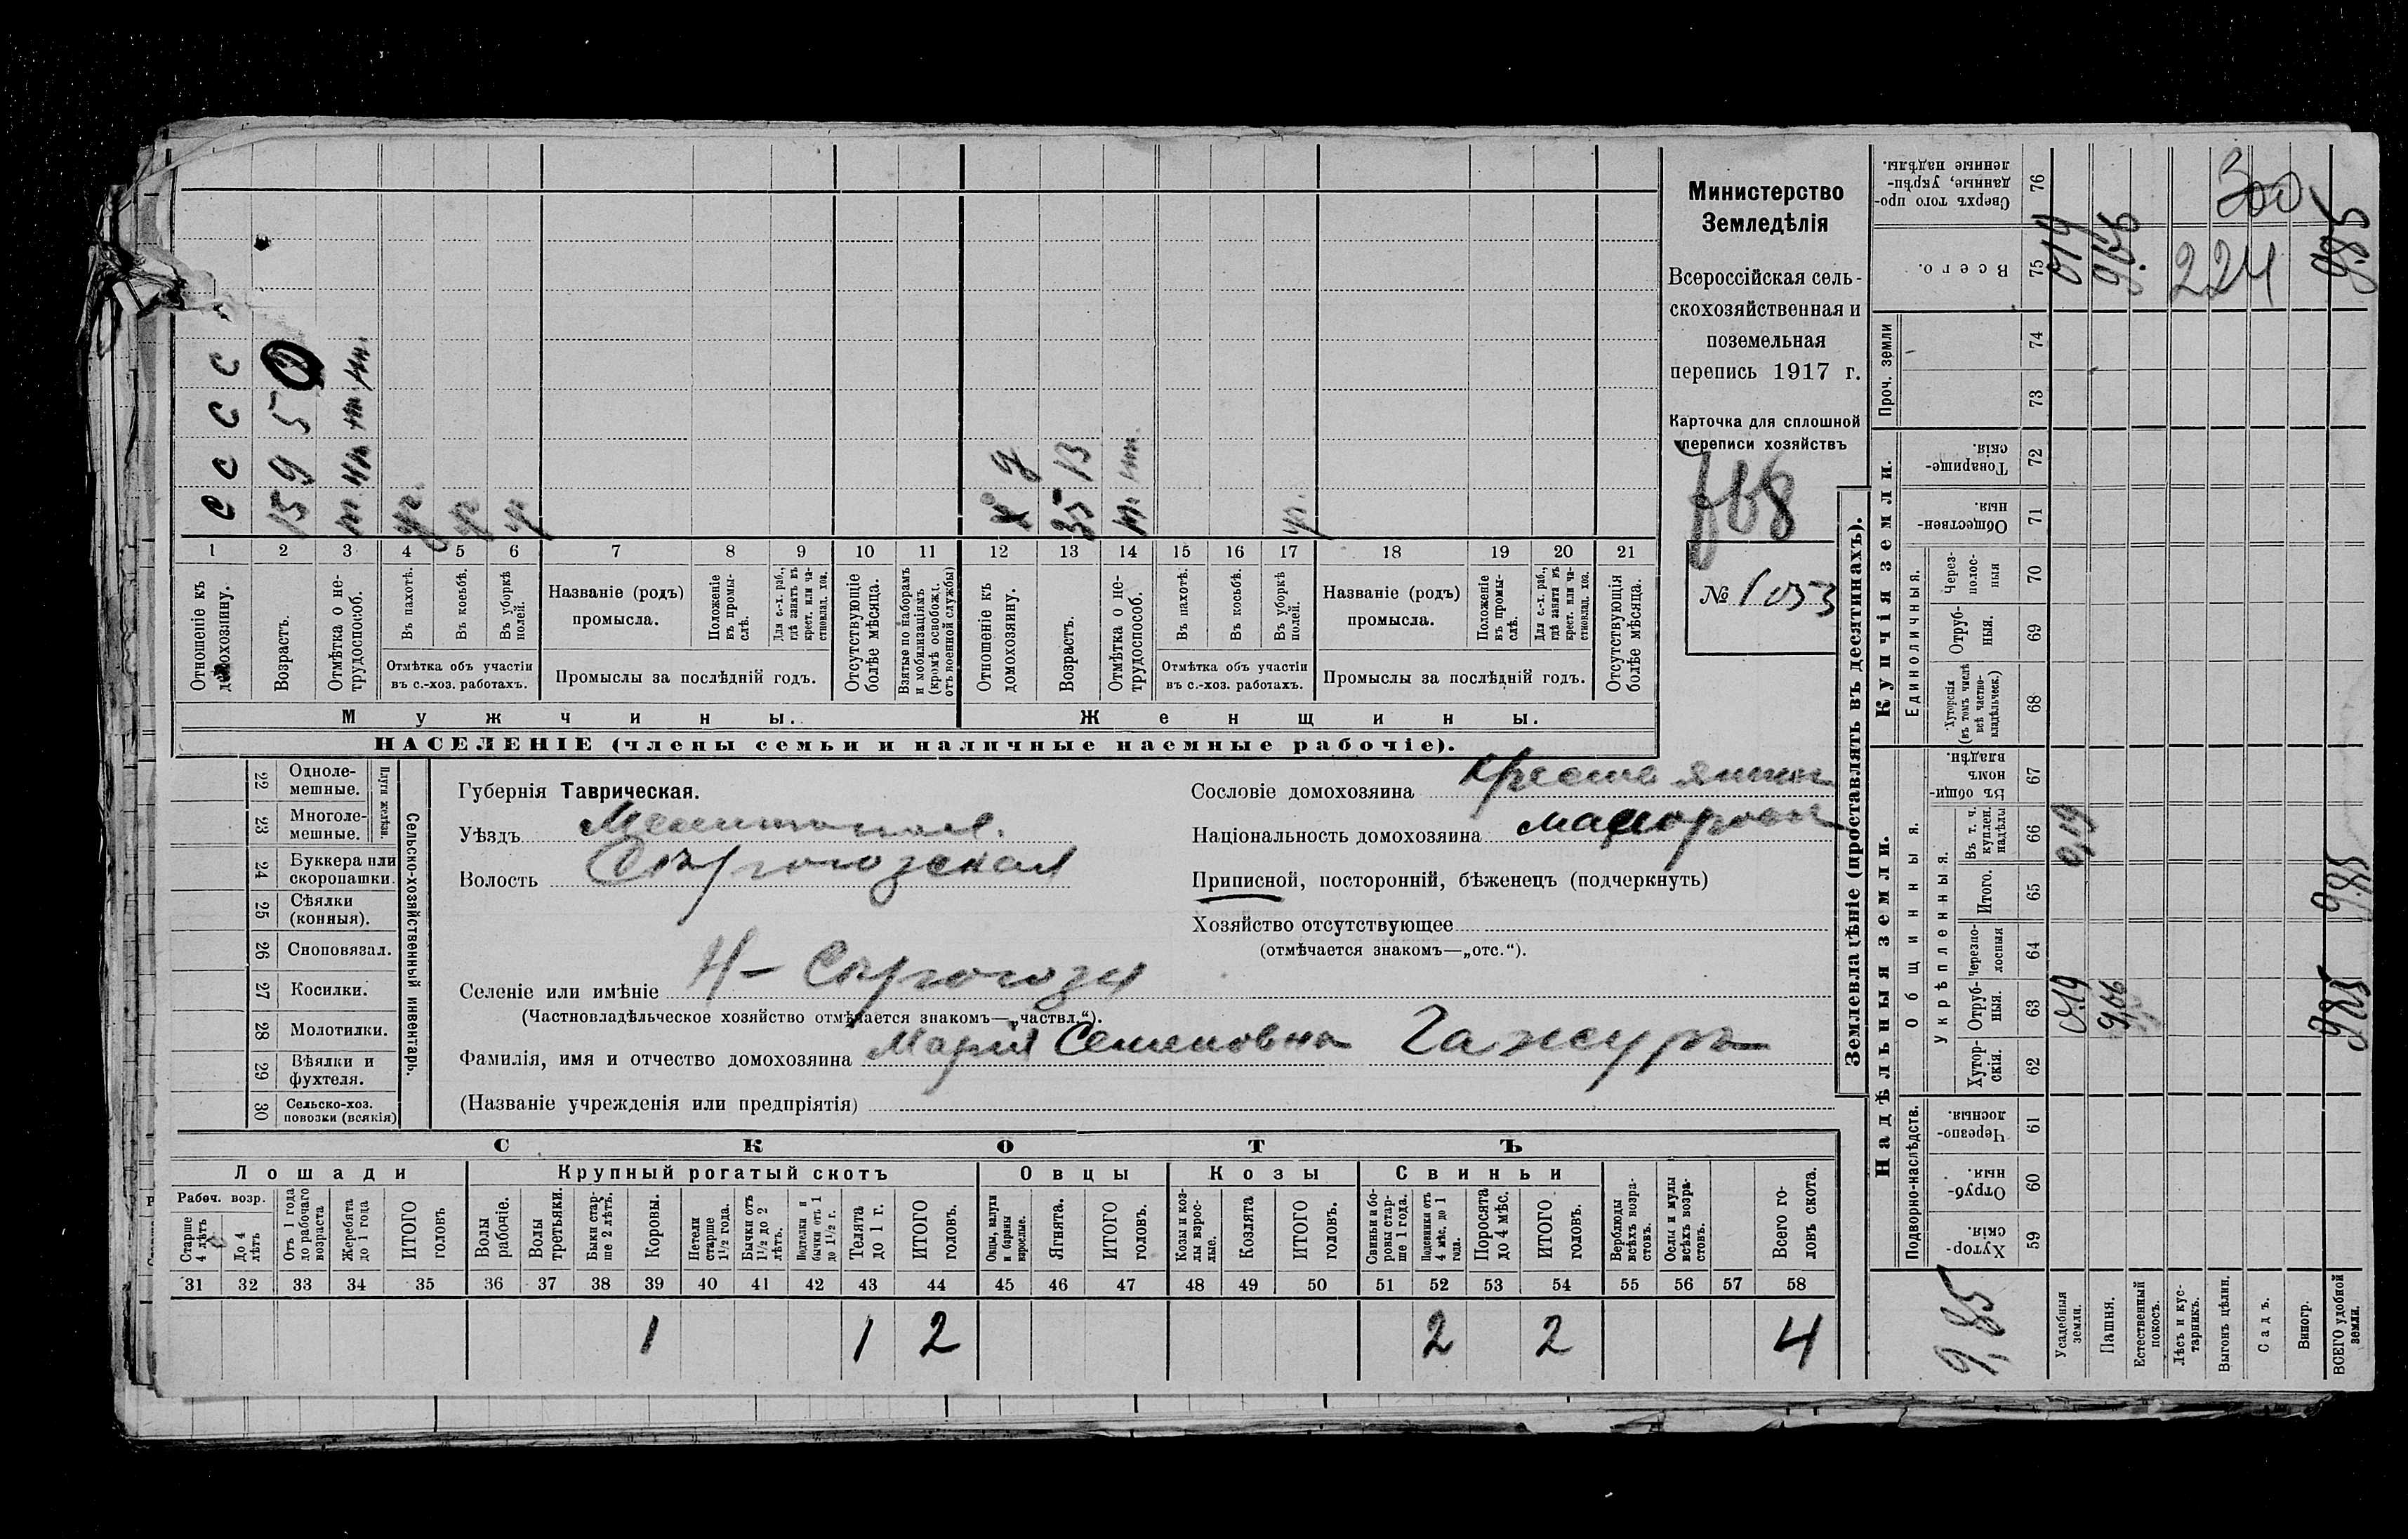 Министерство
Земледѣлія
Всероссійская сель-
скохозяйственная и
поземельная
перепись 1917 г.
Карточка для сплошной
переписи хозяйствъ
№ 1053
с с с с
15 9 5
уч. уч уч
35 13
1 2 3 4 5 6 7 8 9 10 11 12 13 14 15 16 17 18 19 20 21
Отношеніе къ домохозяину.
Возрастъ.
Отмѣтка о не-трудоспособ.
Въ пахотѣ.
Въ косьбѣ.
Въ уборкѣ полей.
Отмѣтка объ участіи въ с.-хоз. работахъ.
Названіе (родъ) промысла.
Положеніе въ промы-слѣ.
Для с.-х. раб., гдѣ занятъ въ крест. или ча-стновлад. хоз.
Промыслы за послѣдній годъ.
Отсутствующіе болѣе мѣсяца.
Взятые по наборамъ и мобилизаціямъ (кромѣ освобожд. отъ военной службы)
Отношеніе къ домохозяину.
Возрастъ.
Отмѣтка о не-трудоспособ.
Въ пахотѣ.
Въ косьбѣ.
Въ уборкѣ полей.
Отмѣтка объ участіи въ с.-хоз. работахъ.
Названіе (родъ) промысла.
Положеніе въ промы-слѣ.
Для с.-х. раб., гдѣ занята въ крест. или ча-стновлад. хоз.
Промыслы за послѣдній годъ.
Отсутствующія болѣе мѣсяца.
Мужчины. Женщины.
НАСЕЛЕНІЕ (члены семьи и наличные наемные рабочіе).
22 Одноле-мешные.
23 Многоле-мешные.
Плуги желѣзн.
24 Буккера или скоропашки.
25 Сѣялки (конныя).
26 Сноповязал.
27 Косилки.
28 Молотилки.
29 Вѣялки и фухтеля.
30 Сельско-хоз. повозки (всякія)
Сельско-хозяйственный инвентарь.
Губернія Таврическая.
Уѣздъ Мелитопол.
Волость Сѣрогозская
Селеніе или имѣніе Н-Сѣрогозы
(Частновладѣльческое хозяйство отмѣчается знакомъ—„частвл.“).
Фамилія, имя и отчество домохозяина Марія Семеновна Гажура
(Названіе учрежденія или предпріятія)
Сословіе домохозяина Крестьянин
Національность домохозяина малорос
Приписной, посторонній, бѣженецъ (подчеркнуть)
Хозяйство отсутствующее
(отмѣчается знакомъ—„отс.“).
СКОТЪ
Лошади Крупный рогатый скотъ Овцы Козы Свиньи
Рабоч. возр.
Старше 4 лѣтъ
До 4 лѣтъ
Отъ 1 года до рабочаго возраста
Жеребята до 1 года
ИТОГО головъ
Волы рабочіе.
Волы третьяки.
Быки стар-ше 2 лѣтъ.
Коровы.
Нетели старше 1½ года.
Бычки отъ 1½ до 2 лѣтъ.
Подтелки и бычки отъ 1 до 1½ г.
Телята до 1 г.
ИТОГО головъ.
Овцы, валухи и бараны взрослые.
Ягнята.
ИТОГО головъ.
Козы и коз-лы взрос-лые.
Козлята
ИТОГО головъ.
Свиньи и бо-ровы стар-ше 1 года.
Подсвинки отъ 4 мѣс. до 1 года.
Поросята до 4 мѣс.
ИТОГО головъ.
Верблюды всѣхъ возра-стовъ.
Ослы и мулы всѣхъ возра-стовъ.
Всего го-ловъ скота.
31 32 33 34 35 36 37 38 39 40 41 42 43 44 45 46 47 48 49 50 51 52 53 54 55 56 57 58
1 1 2 2 2 4
Землевладѣніе (проставлять въ десятинахъ).
Надѣльныя земли. Купчія земли. Проч. земли
Подворно-наслѣдств.
Общинныя.
Укрѣпленныя.
Единоличныя.
Хутор-скія. 59
Отруб-ныя. 60
Черезпо-лосныя. 61
Хутор-скія. 62
Отруб-ныя. 63
Черезпо-лосныя 64
Итого. 65
Въ т. ч. куплен. надѣлы 66
Въ общи-номъ владѣн. 67
Хуторскія (въ томъ числѣ всѣ частно-владѣльческ.) 68
Отруб-ныя. 69
Через-полос-ныя 70
Обществен-ныя. 71
Товарище-скія. 72
73 74
Всего. 75
Сверхъ того про-данные, укрѣп-ленные надѣлы. 76
9,85
Усадебныя земли. 0,19 0,19 019
Пашня. 9,66 9,66
Естественный покосъ.
Лѣсъ и кус-тарникъ.
Выгонъ цѣлин.
Садъ.
Виногр.
ВСЕГО удобной земли. 9,85 9,85 9,85
224
300